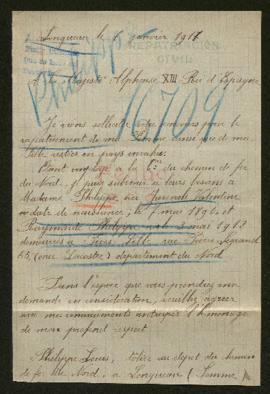 Longueau le 6 janvier 1917
REPATRIACION
CIVIL
A Sa Majesté Alphonse XIII Roi d'Espagne
Philippe
16709
Je viens solliciter votre pour le
rapatriement de ma femme ainsi que de ma
fille restées en pays envahi.
Étant employé à la Cie du chemin de fer
du Nord, je puis subvenir à leurs besoins
Madame Philippe née Valentine
date de naissance, le 7 mai 1890 et
Raymonde Philippe née le 2 mai 1912
demeurées à Lille rue Pierre Legrand
département du Nord
Dans l'espoir que vous prendrez mon
demande en considération, veuillez agréer
avec mes remerciements anticipés l'hommage
de mon profond respect
Philippe Louis, au dépôt du chemin
de fer du Nord, à Longueau (Somme)